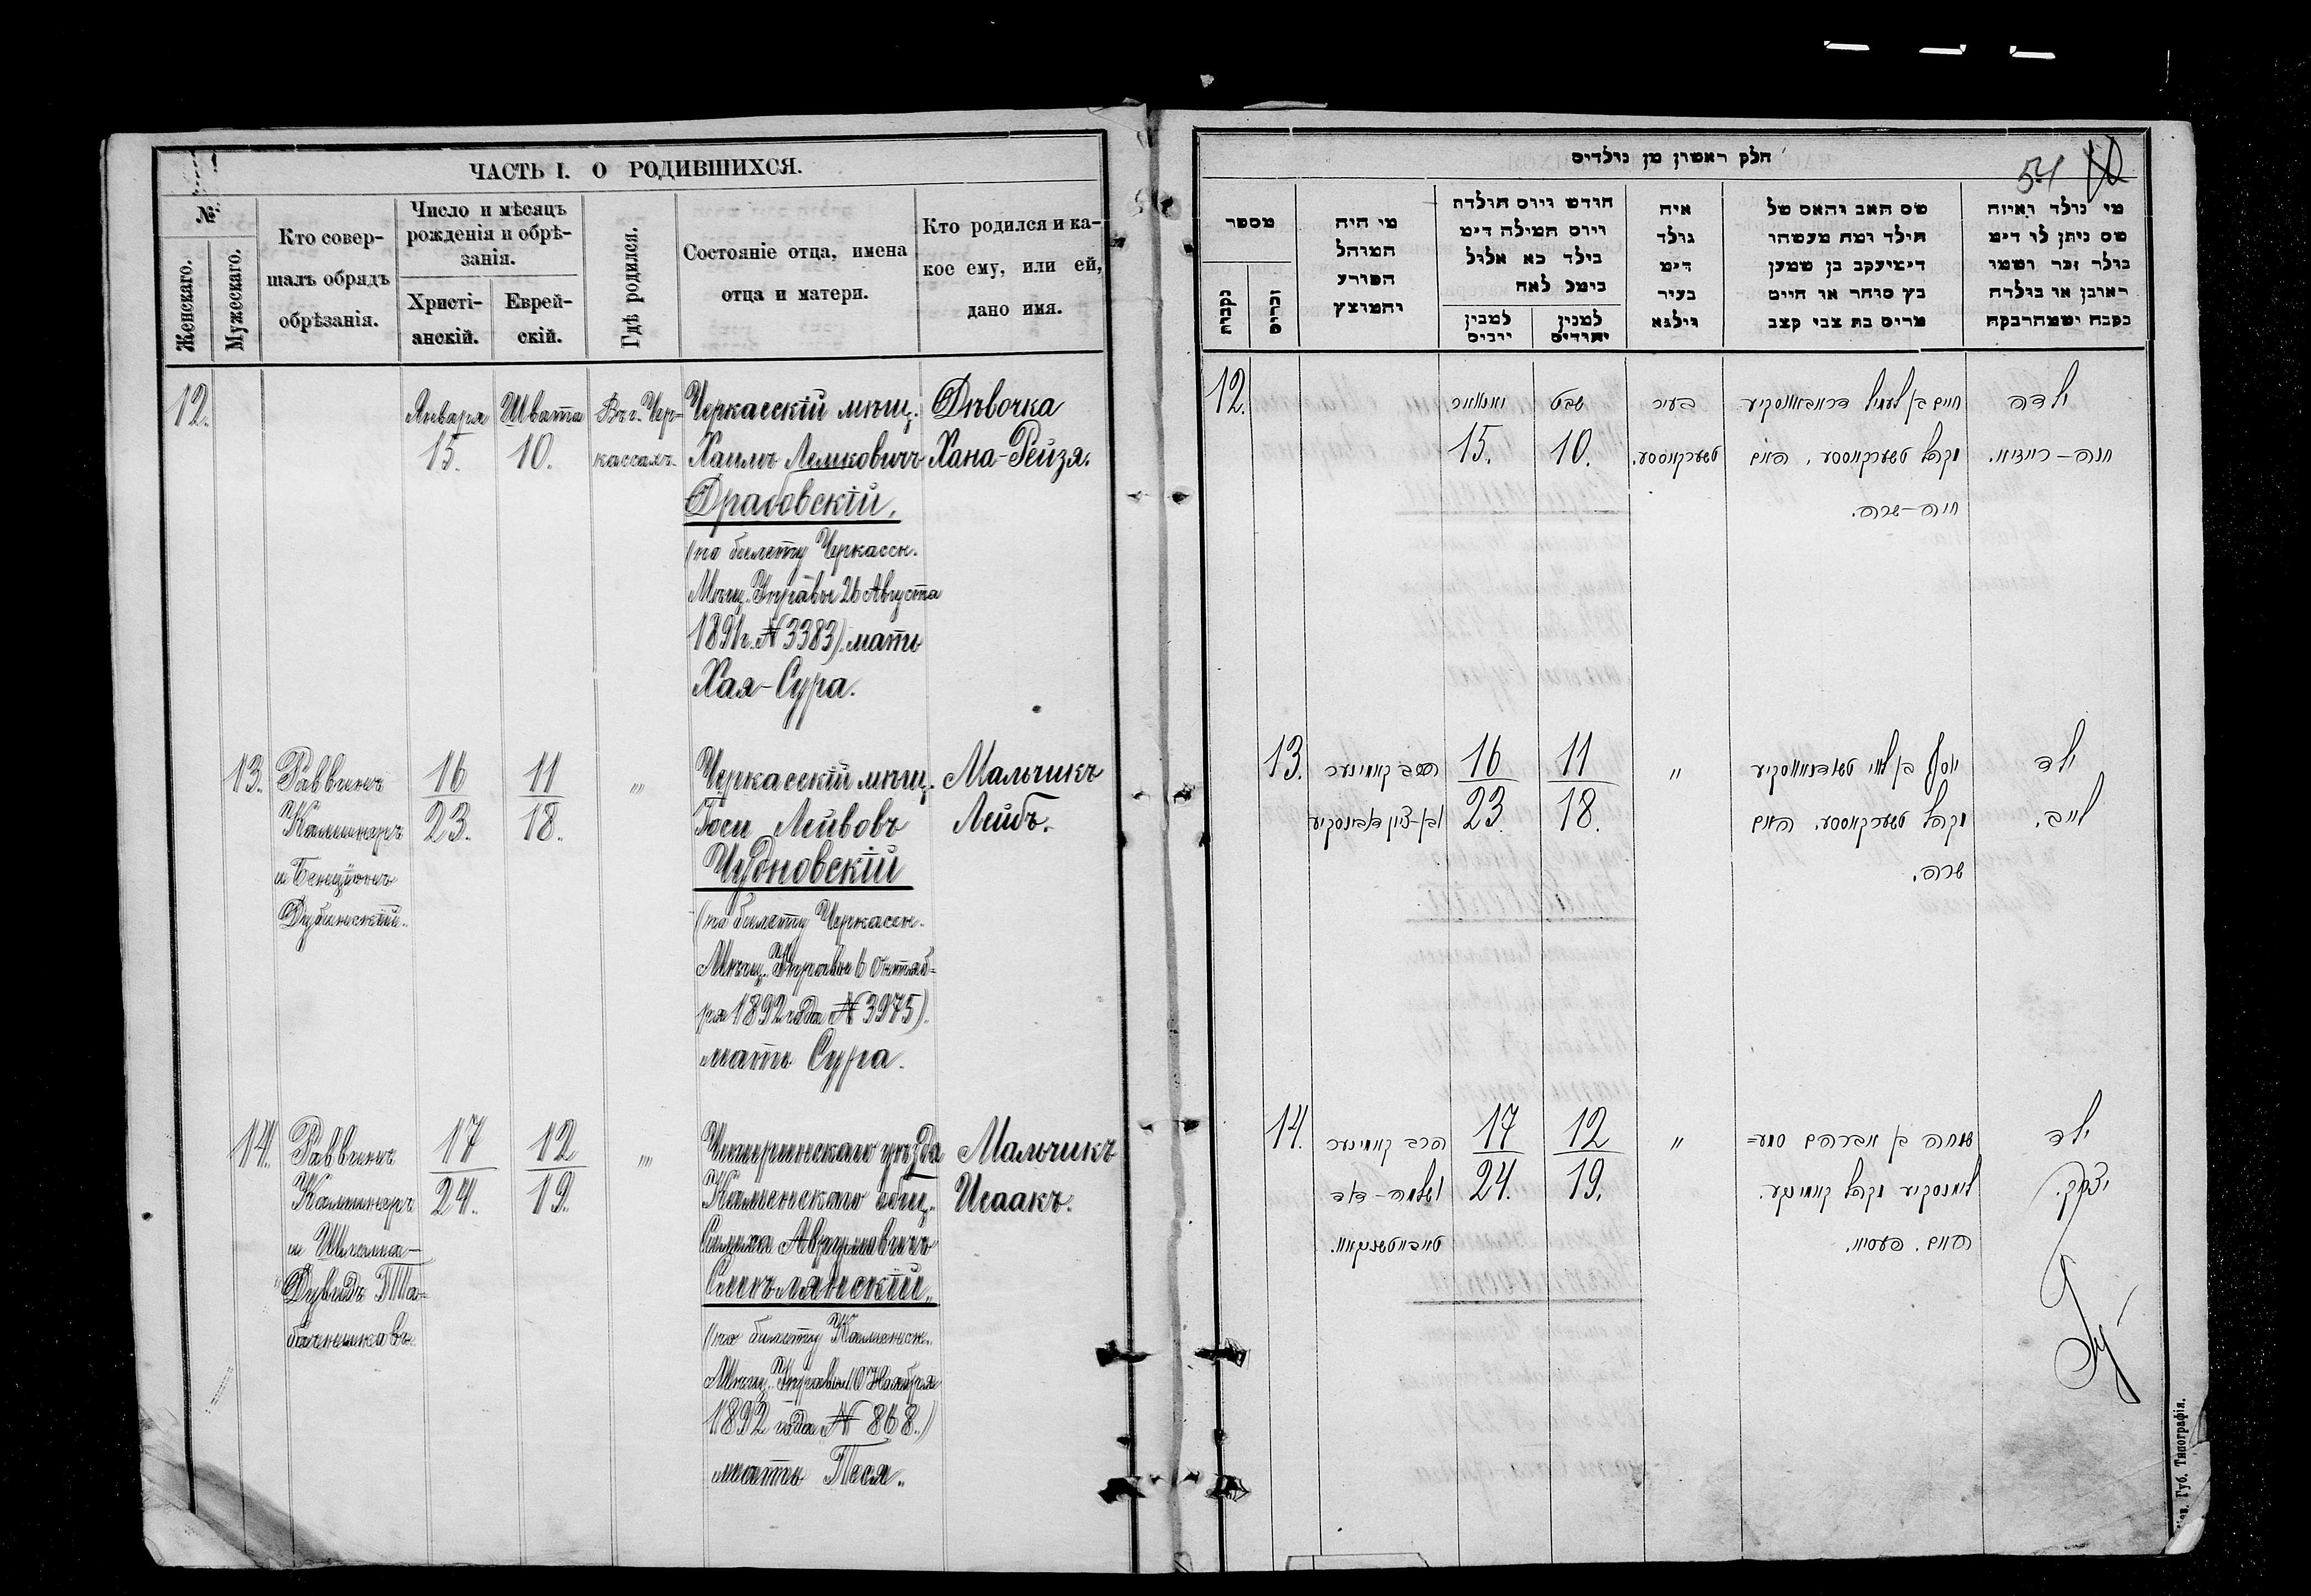 ЧАСТЬ I. О РОДИВШИХСЯ.
№
Женскаго.
Мужескаго.
Кто совер-
шалъ обрядъ
обрѣзанія.
Число и мѣсяцъ
рожденія и обрѣ-
занія.
Христі-
анскій.
Еврей-
скій.
Гдѣ родился.
Состояніе отца, имена
отца и матери.
Кто родился и ка-
кое ему, или ей,
дано имя.
12.
Января
15.
Швата
10.
Въ г. Чер-
кассахъ.
Черкасскій мѣщ.
Хаимъ Лемковичъ
Драбовскій,
(по билету Черкасск.
Мѣщ. Управы 26 Августа
1891 г. № 3383). мать
Хая-Сура.
Дѣвочка
Хана-Рейзя.
13.
Раввинъ
Каминеръ
и Бенціонъ
Дубинскій.
16
23.
11
18.
"
Черкасскій мѣщ.
Іось Лейбовъ
Чудновскій
(по билету Черкасск.
Мѣщ. Управы 6 Октяб-
ря 1892 года № 3975).
мать Сура.
Мальчикъ
Лейбъ.
14.
Раввинъ
Каминеръ
и Шлема-
Дувидъ Та-
17
24.
12
19.
"
Чигиринскаго уѣзда
Каменскаго общ.
Симха Аврумовичъ
Смѣлянскій.
(по билету Каменск.
Мѣщ. Управы 10 Ноября
1892 года № 868.)
мать Песя.
Мальчикъ
Исаакъ.
חלק ראשון מן נולדים
54
מספר
נקבות
זכרים
מי היה
המוהל
הפורע
והמוצץ
חודש ויום תולדה
ויום המילה דימ
בילד כא אלול
בימל לאח
למנין
יונים
למנין
יהודים
איה
נולד
דימ
בעיר
ווילנא
שם האב והאם של
הילד ומה מעשהו
דימ יעקב בן שמעון
כץ סוחר או חייט
מרים בת צבי קצב
מי נולד ואיזה
שם ניתן לו דימ
נולד זכר ושמו
ראובן או נולדה
נקבה ושמה רבקה
12.
יאנואר
15.
שבט
10.
בעיר
טשערקאססע.
חיים בן לעמיל דראבאווסקיע
מקהל טשערקאססע, האם
חיה-שרה.
ילדה
חנה-רייזיא.
13.
הרב קאמינער
ובן-ציון דובינסקיע
16
23.
11
18.
"
יוסף בן לייב טשודנאווסקיע
מקהל טשערקאססע. האם
שרה.
ילד
לייב.
14.
הרב קאמינער
ושלמה-דוד
17
24.
12
19.
"
שמחה בן אברהם סמע=
ליאנסקיע מקהל קאמינקע.
האם. פעסיא.
ילד
יצחק.
Губ. Типографія.